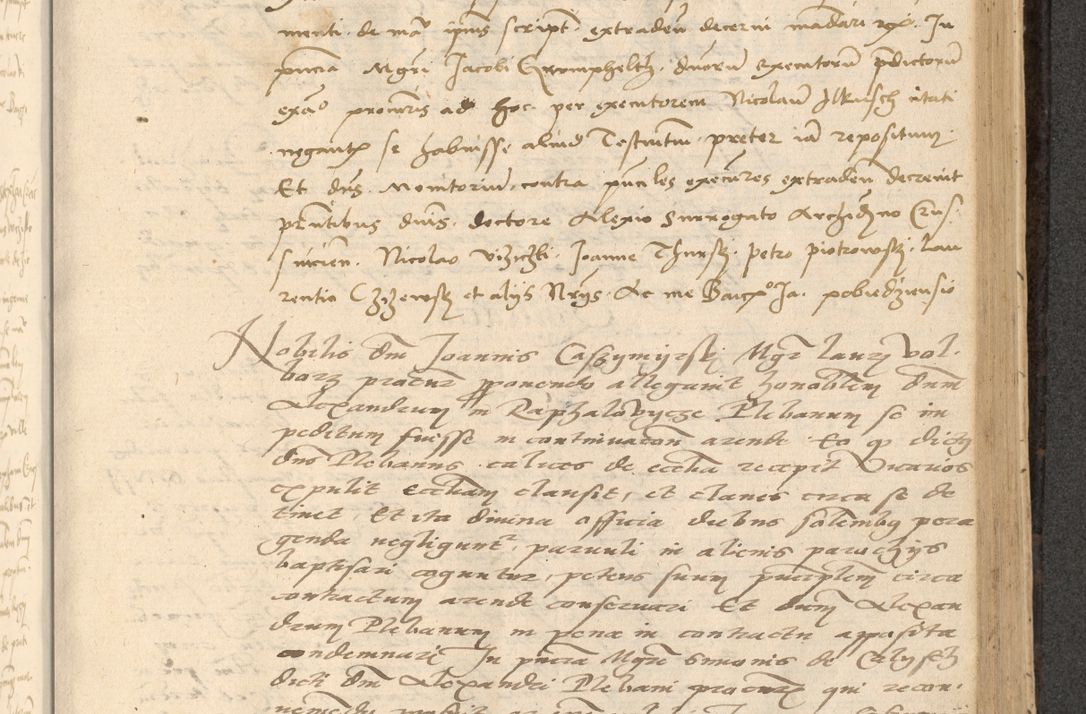 menti de mã ipius script. extradeñ decerni mãdari &c. In
pñcia Mgri Jacobi Grompheltz. duorũ executorũ pdictorũ
exãº procuris ad hoc per executorem Nicolaũ Ilkusch citati
negantis se habuisse aliud Testmtũ preter iã repositum.
Et dñs Monitoriũ contra pñciles execures extradeñ decrevit
pñtibus dñis doctore Alexio Surrogato Archidyno Crus-
suicien. Nicolao Vizichki. Joanne Thursky. petro piotrowsky. Lau
rentio Czyzewsky et alijs Nrijs. Ac me Barpº Ja. pobiedziensio
Nobilis dñi Joannis Caszymyrsky Mgr Laurz vol.
borz procur pponendo allegavit honoblem dnm
Alexandrum in Raphalovycze Plebanum se im
peditum fuisse in continuacon arende Eo qz dictz
dns Plebanus calices de ecctia recepit Vicarios
expulit eccliam clausit, et claves circa se de
tinet, Et ita divina officia diebus solembz pera
genda negligunt, parvuli in alienis parochijs
baptisari coguntur, petens suum principlem circa
contractum arende conservari Et dnm Alexan
drum Plebanum in pena in contractu apposita
condemnari In pñcia Mgri Simonis de
dicti dñi Alexandri Plebani procuris qui recon-